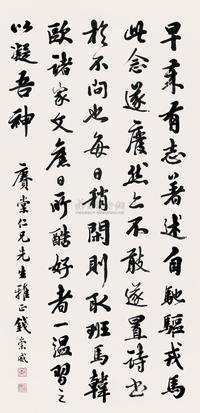 早年有志著述自馳驅戎馬
此念遂廢然亦不敢遂置詩書
於不問也每日稍閒則取班馬韓
歐諸家文舊日所酷好者一溫習之
以凝吾神
賡棠仁兄先生雅正 錢崇威